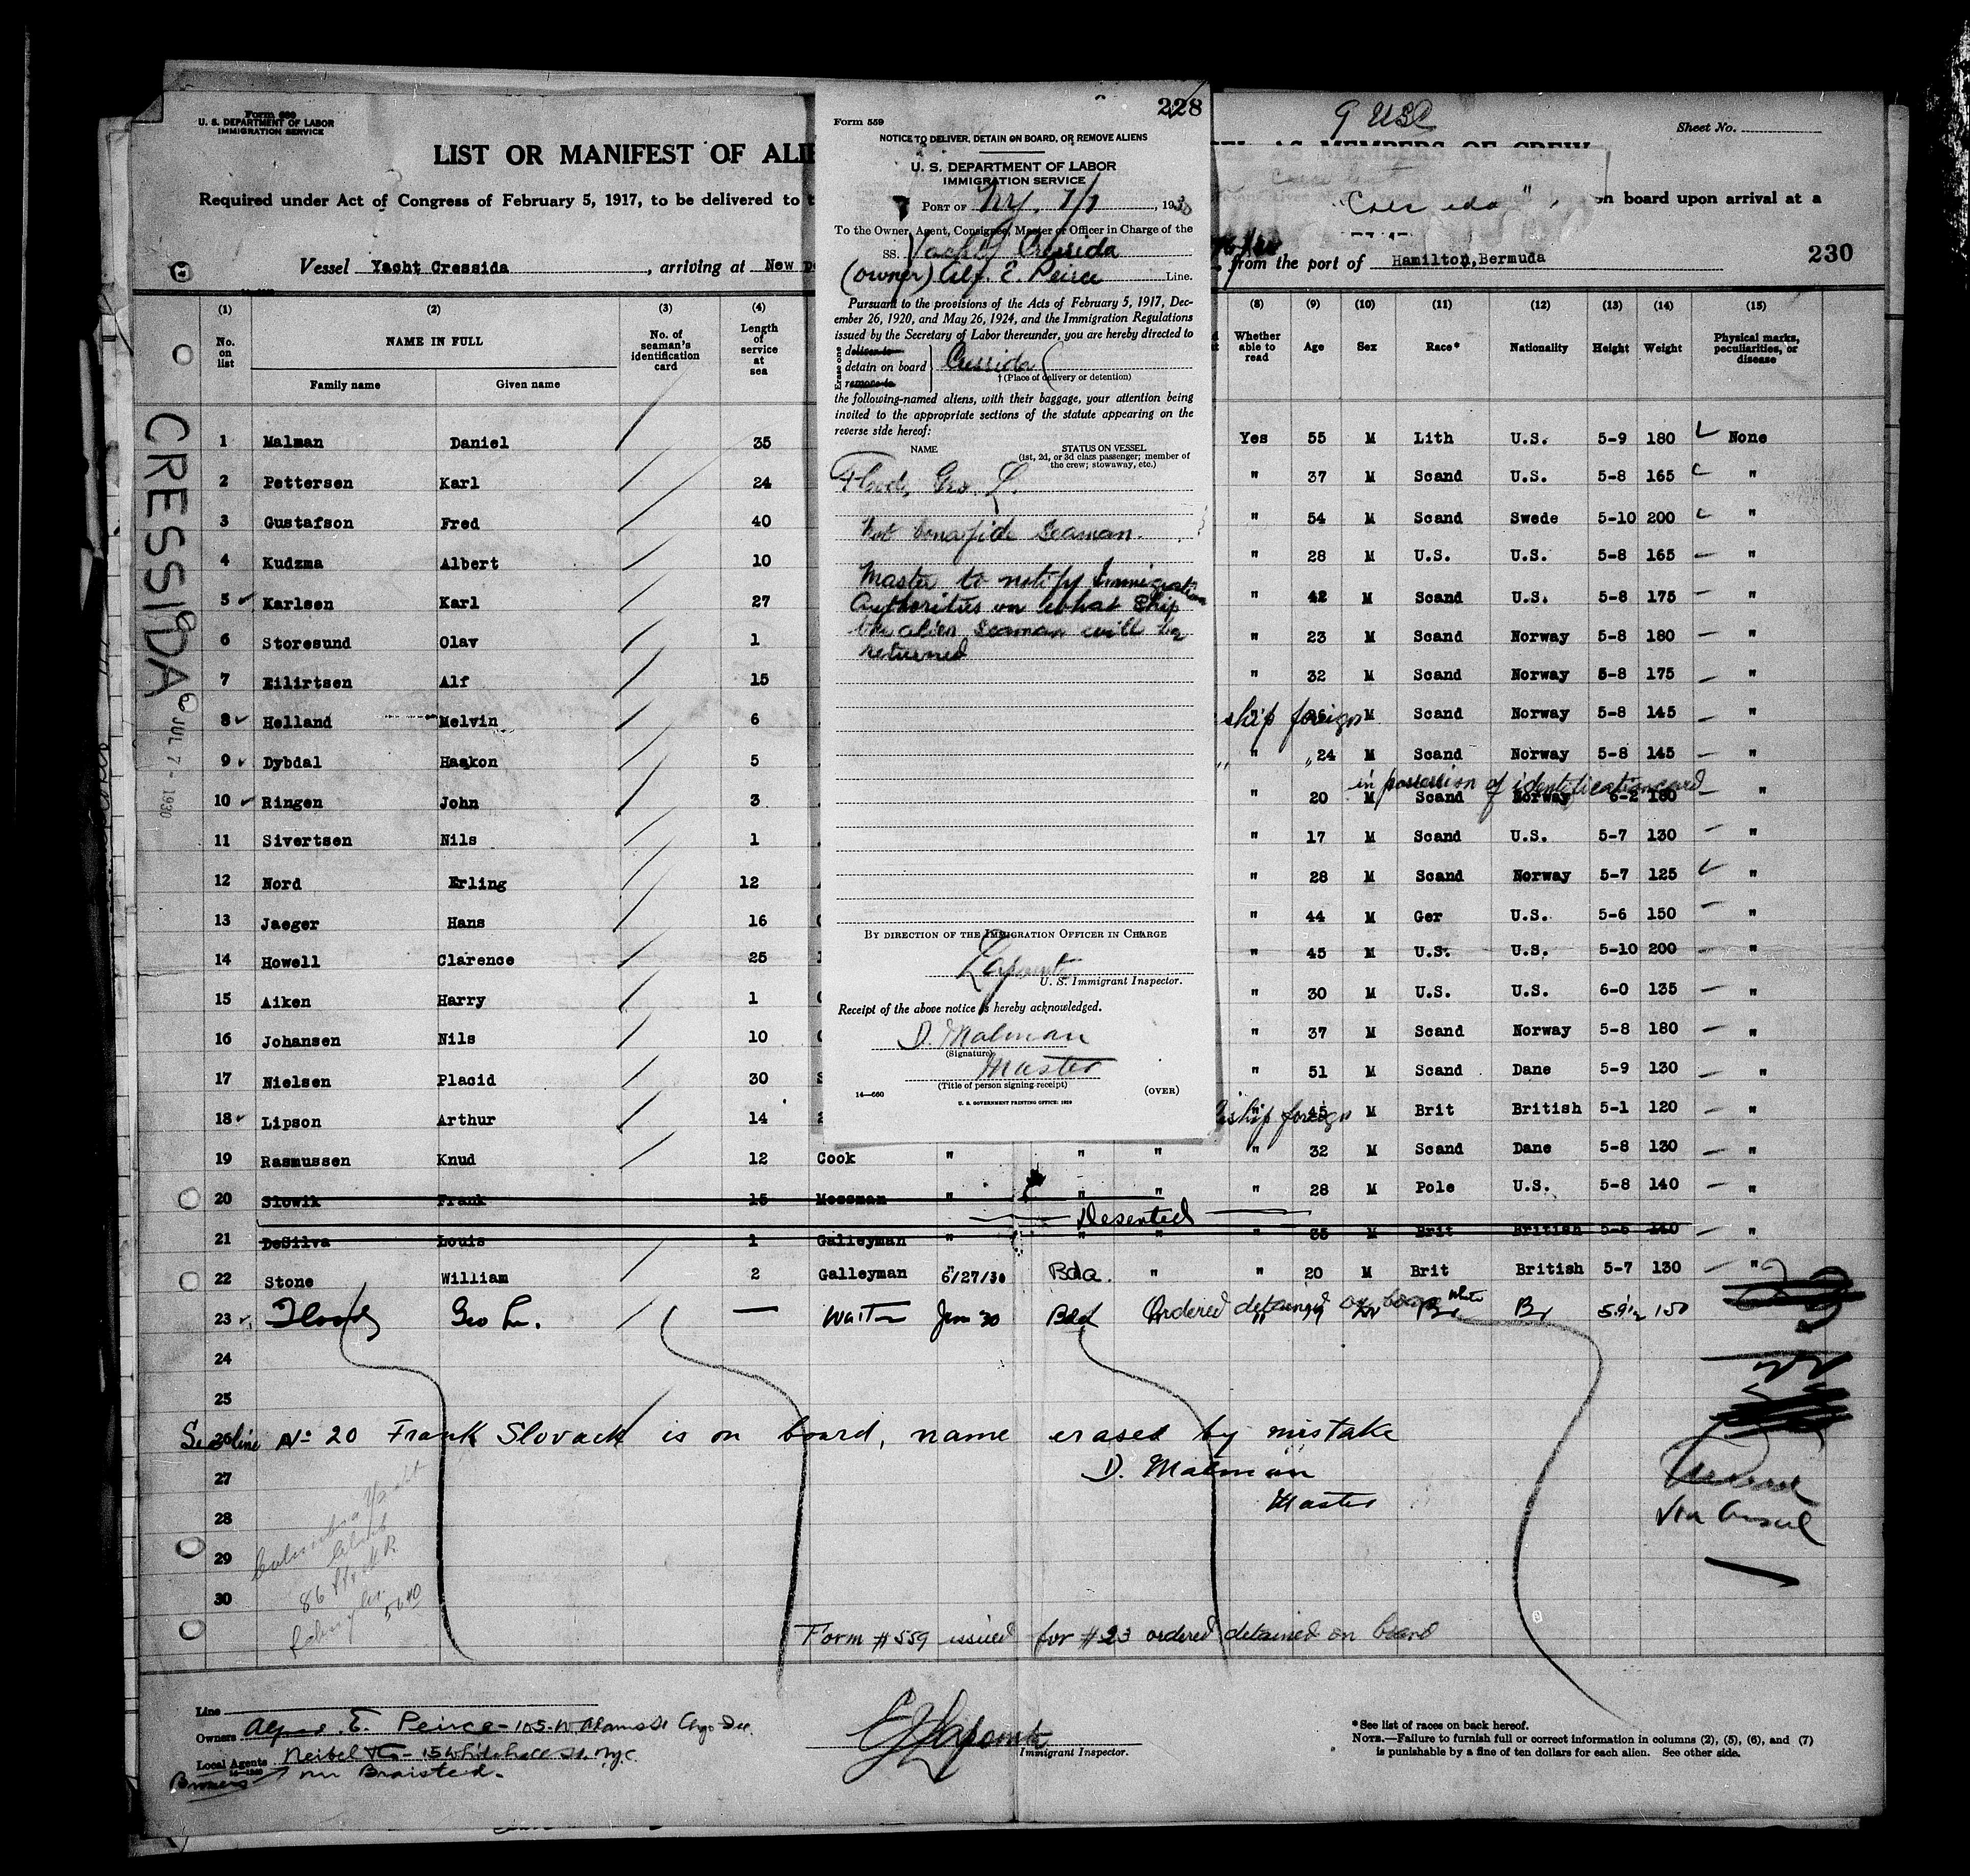 228
Form 559
NOTICE TO DELIVER, DETAIN ON BOARD, OR REMOVE ALIENS
U. S. DEPARTMENT OF LABOR
IMMIGRATION SERVICE
PORT OF N.Y. 7/7, 1930
To the Owner, Agent, Consignee, Master or Officer in Charge of the
SS. Yacht Cressida
(owner) Alf. E. Peirce Line.
Pursuant to the provisions of the Acts of February 5, 1917, Dec-
ember 26, 1920, and May 26, 1924, and the Immigration Regulations
issued by the Secretary of Labor thereunder, you are hereby directed to
Erase one
deliver to
detain on board Cressida
remove to
† (Place of delivery or detention)
the following-named aliens, with their baggage, your attention being
invited to the appropriate sections of the statute appearing on the
reverse side hereof:
NAME STATUS ON VESSEL
(1st, 2d, or 3d class passenger; member of
the crew; stowaway, etc.)
Flood, Geo. L.
Not bonafide seaman.
Master to notify Immigration
Authorities on what ship
the alien seaman will be
returned
BY DIRECTION OF THE IMMIGRATION OFFICER IN CHARGE
U. S. Immigrant Inspector.
Receipt of the above notice is hereby acknowledged.
D. Malman
(Signature)
Master
(Title of person signing receipt)
14—660 (OVER)
U. S. GOVERNMENT PRINTING OFFICE: 1929
Form 680
U. S. DEPARTMENT OF LABOR
IMMIGRATION SERVICE
9 USC
Sheet No.
LIST OR MANIFEST OF ALI AS MEMBERS OF CREW
Required under Act of Congress of February 5, 1917, to be delivered to t on board upon arrival at a
Vessel Yacht Cressida, arriving at New from the port of Hamilton,Bermuda
230
CRESSIDA
JUL 7 - 1930
(1) (2) (3) (4) (8) (9) (10) (11) (12) (13) (14) (15)
No. on list NAME IN FULL No. of seaman's identification card Length of service at sea Whether able to read Age Sex Race* Nationality Height Weight Physical marks, peculiarities, or disease
Family name Given name
1 Malman Daniel 35 Yes 55 M Lith U.S. 5-9 180 None
2 Pettersen Karl 24 " 37 M Scand U.S. 5-8 165 "
3 Gustafson Fred 40 " 54 M Scand Swede 5-10 200 "
4 Kudzma Albert 10 " 28 M U.S. U.S. 5-8 165 "
5 Karlsen Karl 27 " 42 M Scand U.S. 5-8 175 "
6 Storesund Olav 1 " 23 M Scand Norway 5-8 180 "
7 Eilirtsen Alf 15 " 32 M Scand Norway 5-8 175 "
8 Helland Melvin 6 ship foreign " M Scand Norway 5-8 145 "
9 Dybdal Haakon 5 " 24 M Scand Norway 5-8 145 "
in possession of identification card
10 Ringen John 3 " 20 M Scand Norway 6-2 180 "
11 Sivertsen Nils 1 " 17 M Scand U.S. 5-7 130 "
12 Nord Erling 12 " 28 M Scand Norway 5-7 125 "
13 Jaeger Hans 16 " 44 M Ger U.S. 5-6 150 "
14 Howell Clarence 25 " 45 M U.S. U.S. 5-10 200 "
15 Aiken Harry 1 " 30 M U.S. U.S. 6-0 135 "
16 Johansen Nils 10 " 37 M Scand Norway 5-8 180 "
17 Nielsen Placid 30 " 51 M Scand Dane 5-9 130 "
18 Lipson Arthur 14 ship foreign " 45 M Brit British 5-1 120 "
19 Rasmussen Knud 12 Cook " " " " 32 M Scand Dane 5-8 130 "
20 Slowik Frank 15 Messman " " " " 28 M Pole U.S. 5-8 140 "
Deserted
21 DeSilva Louis 1 Galleyman " " " " 35 M Brit British 5-6 140 "
22 Stone William 2 Galleyman 6/27/30 Bda. " " 20 M Brit British 5-7 130 "
23 Flood Geo L. — Waiter Jun 30 Bda Ordered detained on board White Br 5.9½ 150
24
25
26 See line No 20 Frank Slovack is on board, name erased by mistake
27 D. Malman
28 Master
29
30
Columbia Yacht
Club
86 St
Form #559 issued for #23 ordered detained on board
Line
Owners Alfred E. Peirce - 105 W. Adams St
Local Agents Neibel & Co - 15 Whitehall St. N.Y.C.
Brokers Mr Braisted.
Immigrant Inspector.
*See list of races on back hereof.
NOTE.—Failure to furnish full or correct information in columns (2), (5), (6), and (7)
is punishable by a fine of ten dollars for each alien. See other side.